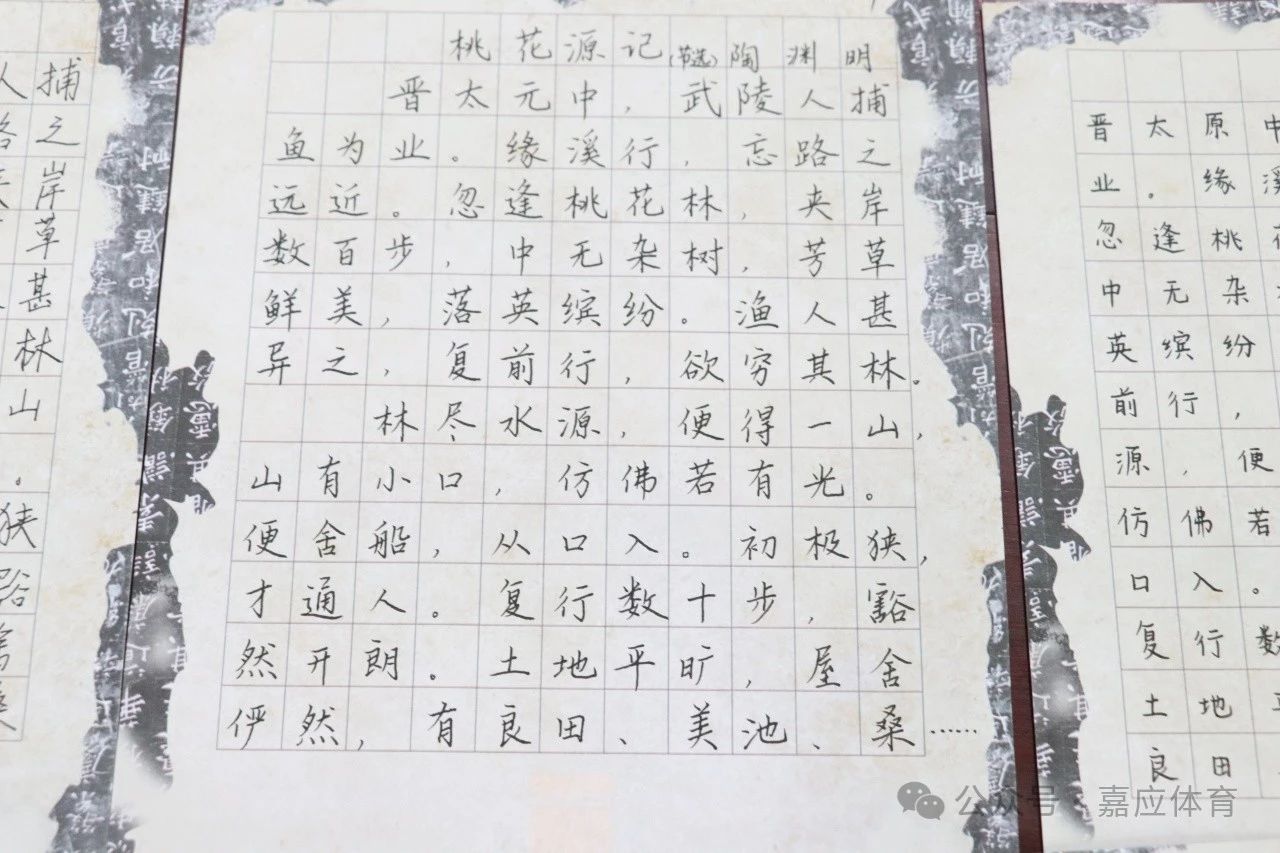 桃花源记(节选)陶渊明
晋太元中，武陵人捕
鱼为业。缘溪行，忘路之
远近。忽逢桃花林，夹岸
数百步，中无杂树，芳草
鲜美，落英缤纷。渔人甚
异之，复前行，欲穷其林。
林尽水源，便得一山，
山有小口，仿佛若有光。
便舍船，从口入。初极狭，
才通人。复行数十步，豁
然开朗。土地平旷，屋舍
俨然，有良田、美池、桑……
人捕
路之
夹岸
草
甚
林
山
。
狭
豁
桑
晋太原中
业。缘溪
忽逢桃花
中无杂
英缤纷
前行，
源，便
仿佛若
口入。
复行数
土地平
良田
公众号·嘉应体育